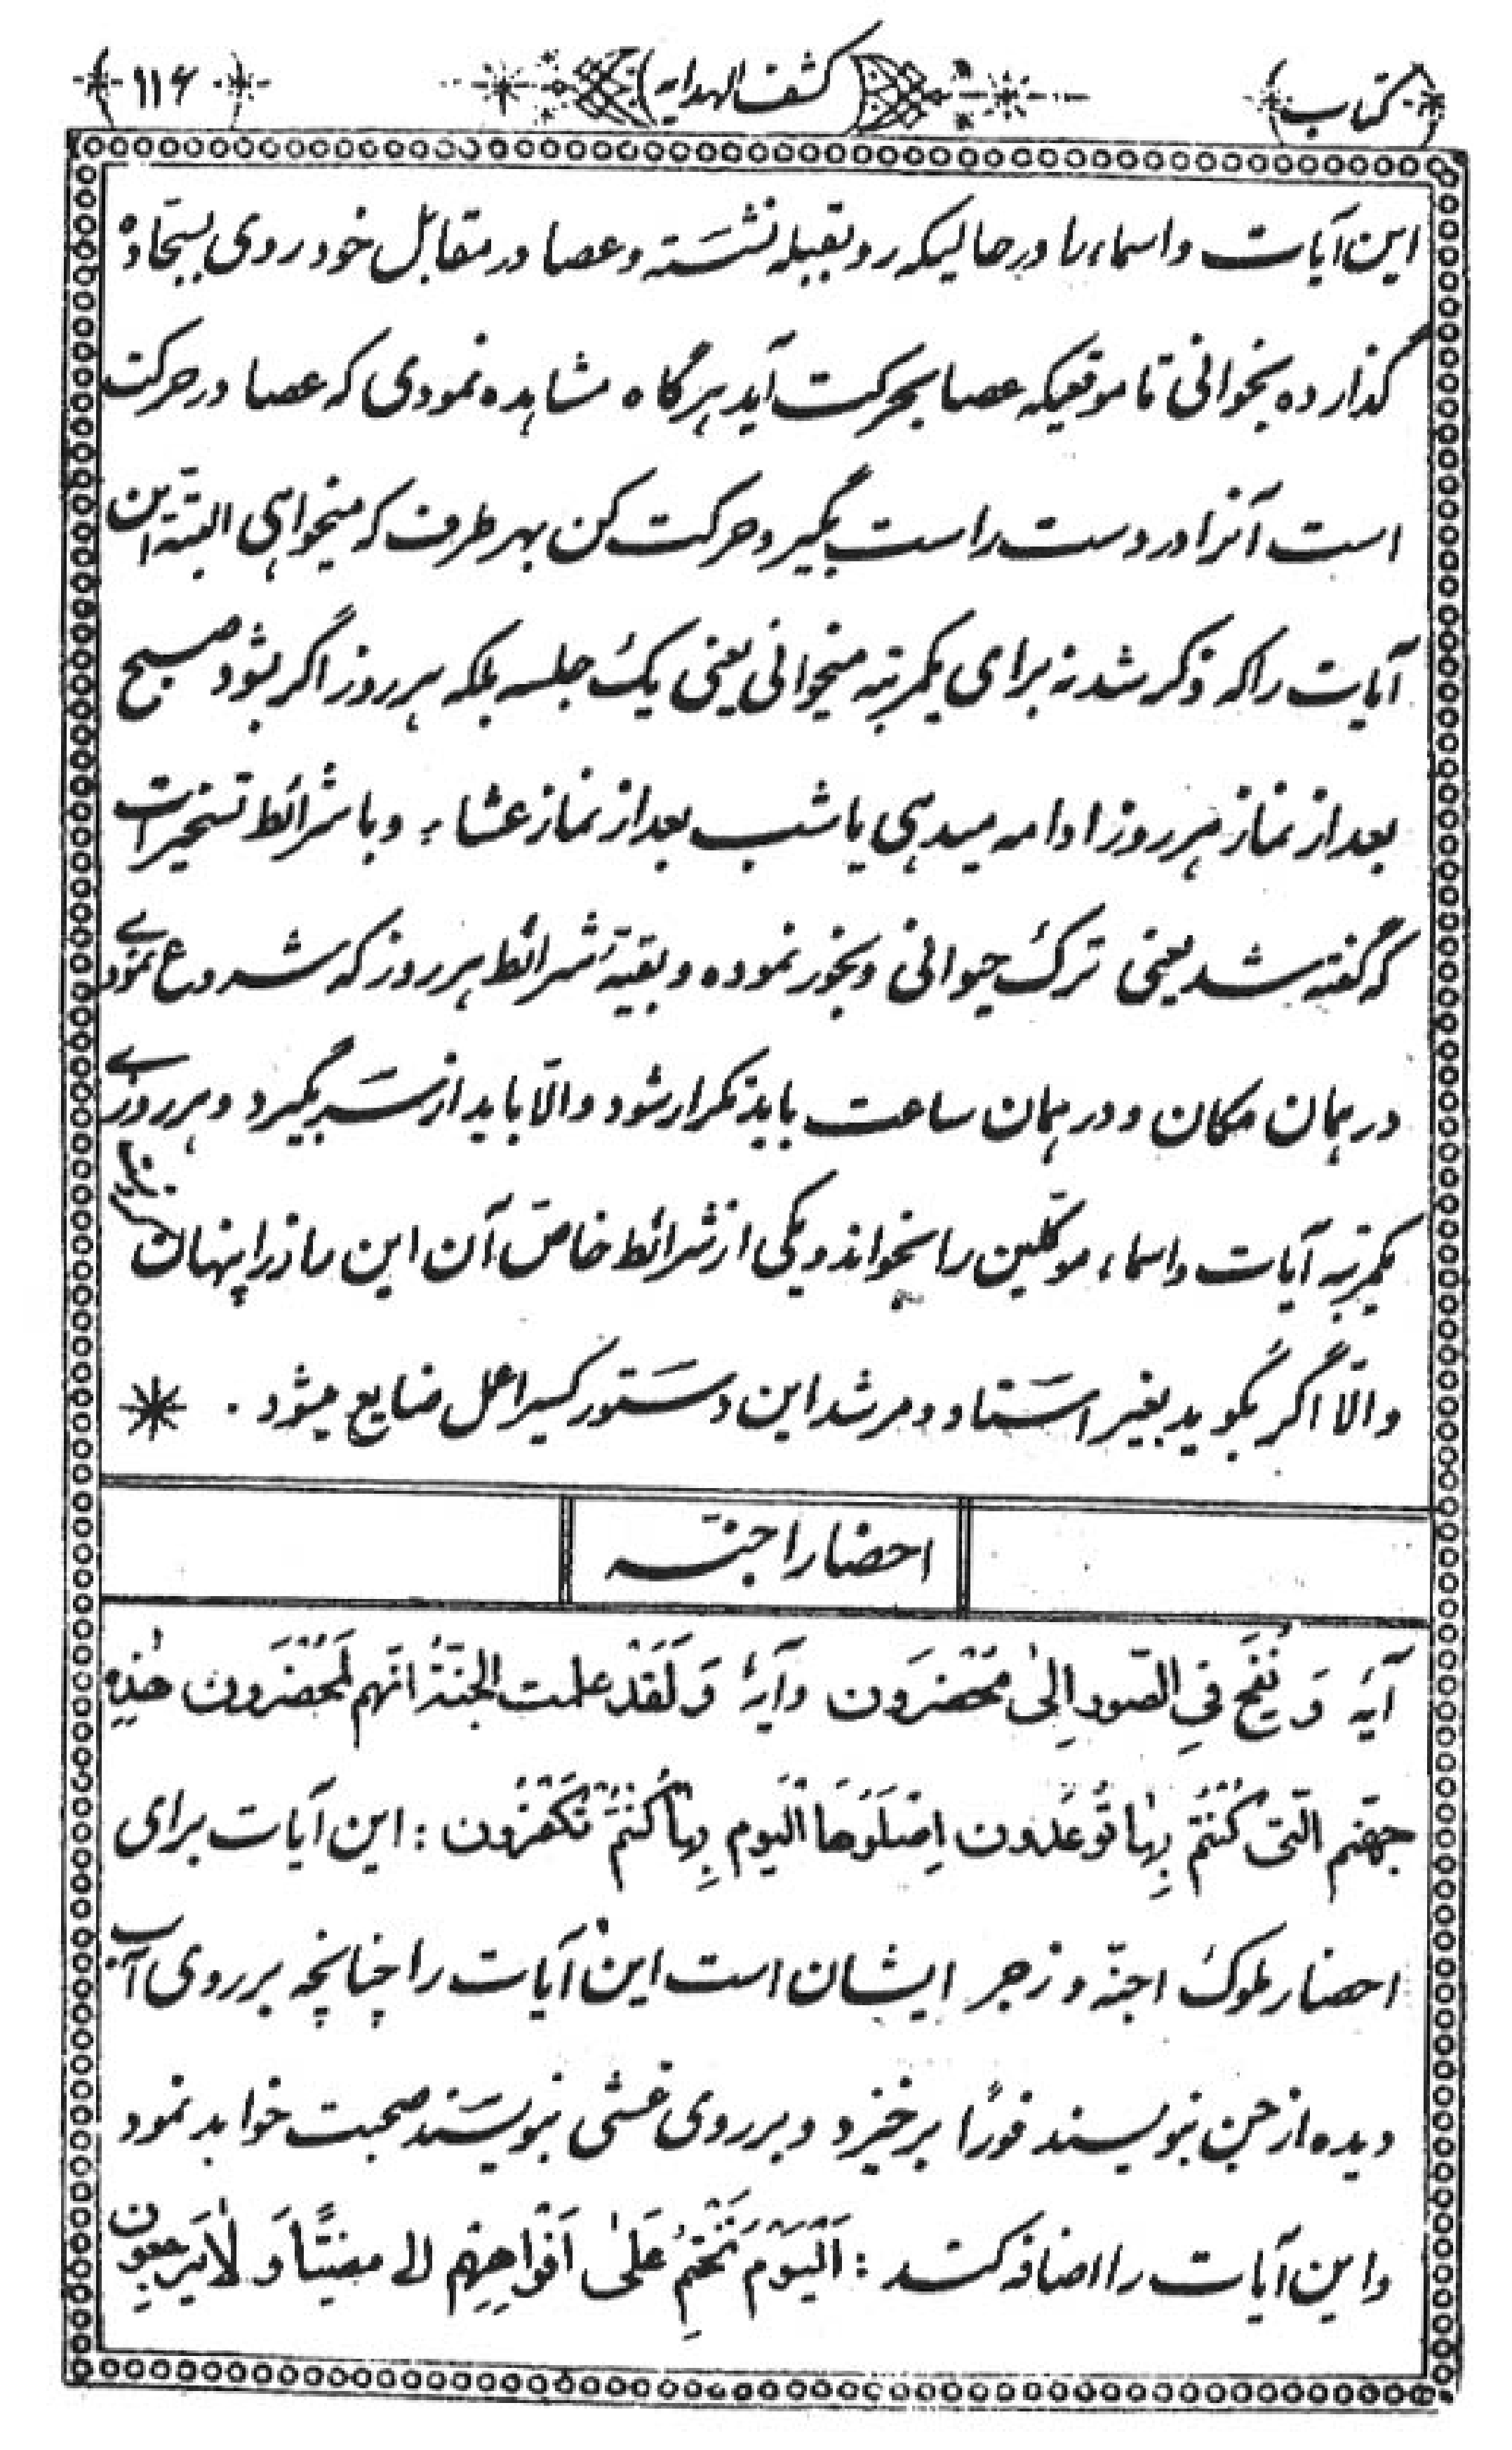 کتاب (کشف الهدایه) ۱۱۶
این آیات واسماء را درحالیکه روبقبله نشسته وعصا درمقابل خود روی سجاده
گذارده بخوانی تا موقعیکه عصا بحرکت آید هرگاه مشاهده نمودی که عصا درحرکت
است آنرا در دست راست بگیر وحرکت کن بهر طرف که میخواهی البتّه این
آیات را که ذکر شد نه برای یکمرتبه میخوانی یعنی یک جلسه بلکه هر روز اگر بشود صبح
بعد از نماز هر روز ادامه میدهی یا شب بعد از نماز عشاء وبا شرائط تسخیرات
که گفته شد یعنی ترک حیوانی وبخور نموده وبقیّه شرائط هر روز که شروع نمودی
در همان مکان ودر همان ساعت باید تکرار شود والّا باید از سر بگیرد وهر روزی
یکمرتبه آیات واسماء موکّلین را بخواند ویکی از شرائط خاصّ آن این راز را پنهان
والّا اگر بگوید بغیر استاد ومرشد این دستور کسیرا عمل ضایع میشود .
احضار اجنّه
آیهٔ وَ نُفِخَ فِی الصّور اِلیٰ مُحْضَرَون وآیهٔ وَ لَقَدْ علمت الجنّةُ انّهم لَمُحْضَرَون هٰذِه
جهنّم الّتی کُنْتُم بِهٰا تُوعَدُون اِصْلَوْهَا الْیَوم بِهٰا کُنْتُمْ تَکْفُرُون : این آیات برای
احضار ملوک اجنّه وزجر ایشان است این آیات را چنانچه بر روی آب
دیده از جن بنویسند فورًا برخیزد وبر روی غشی بنویسند صحبت خواهد نمود
واین آیات را اضافه کند : اَلْیَوْم نَخْتِمُ عَلیٰ اَفْوٰاهِهِم الی مضیًّا وَ لٰا یَرجعون